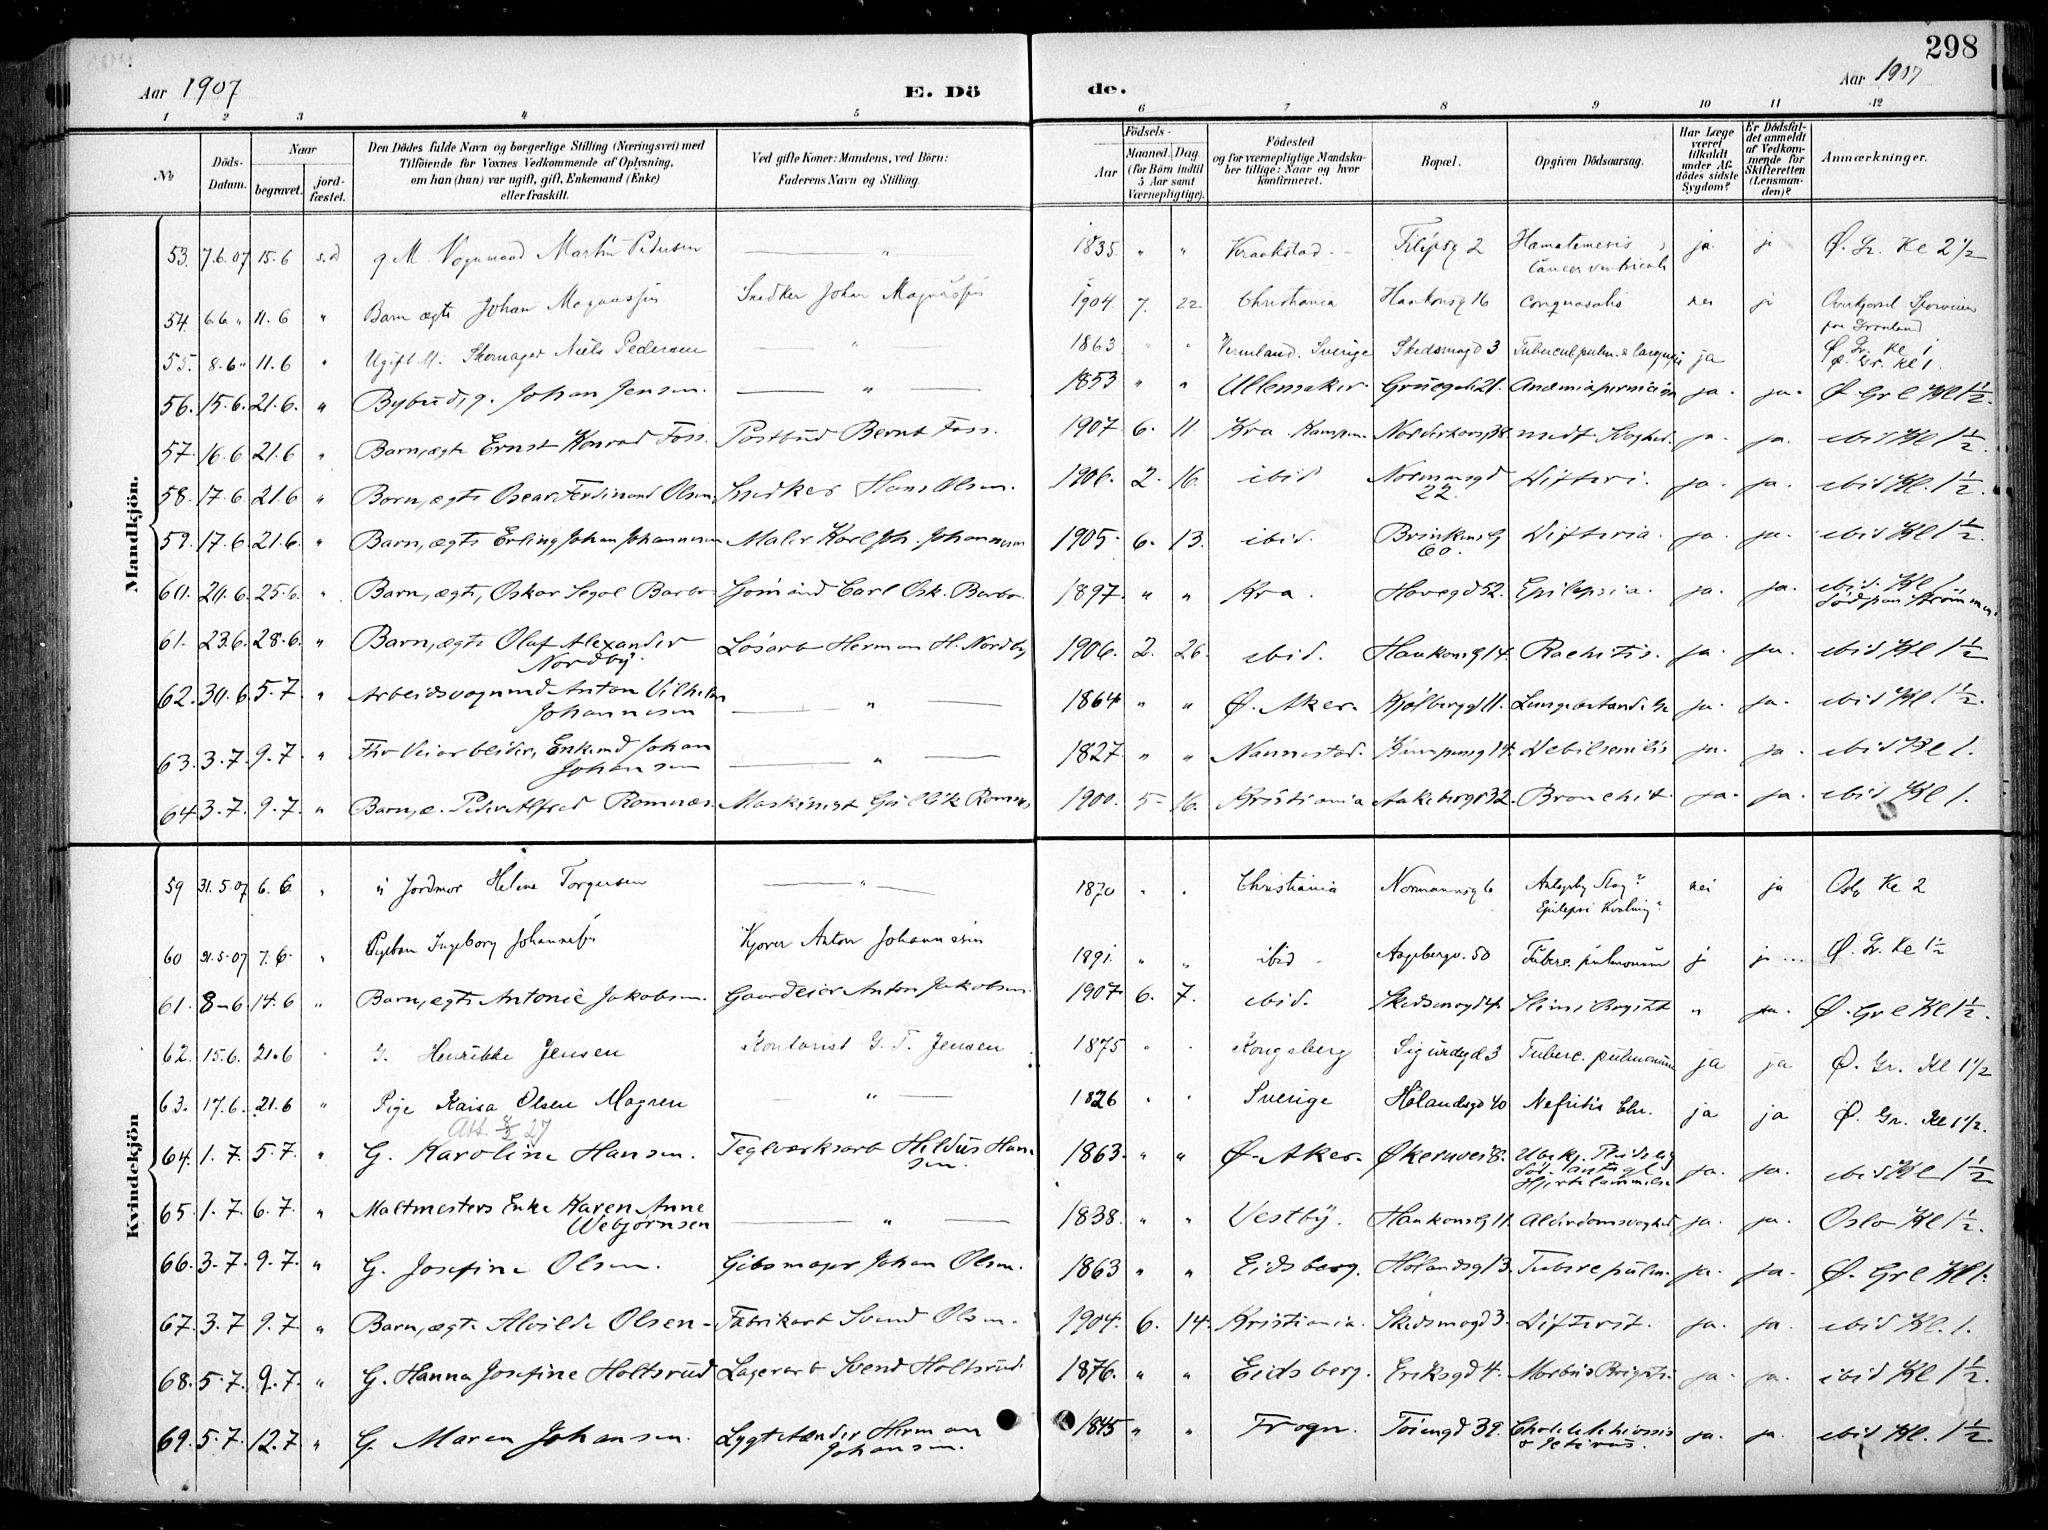 298
Aar 1907
E. Dö
de.
Aar 1907
1 2 3 4 5 6 7 8 9 10 11 12
No
Döds-Datum.
Naar
begravet.
jordfæstet.
Den Dödes fulde Navn og borgerlige Stilling (Næringsvei) med
Tilföiende for Voxnes Vedkommende af Oplysning,
om han (hun) var ugift, gift, Enkemand (Enke)
eller fraskilt.
Ved gifte Koner: Mandens, ved Börn:
Faderens Navn og Stilling.
Födsels-
Aar
Maaned. Dag.
(for Börn indtil
5 Aar samt
Værnepligtige).
Födested
og for værnepligtige Mandska-
ber tillige: Naar og hvor
konfirmeret.
Bopæl.
Opgiven Dödsaarsag.
Har Læge
været
tilkaldt
under Af-
dödes sidste
Sygdom?
Er Dödsfal-
det anmeldt
af Vedkom-
mende for
Skifteretten
(Lensman-
den)?
Anmærkninger.
Mandkjön.
53. 7.6.07 15.6 s.d g M. Vognmand Martin Pedersen — " — 1835 " " Kraakstad Filipsg 2 Hamatemesis Cancer ventriculi ja j Ø. Gr. Kl 2 1/2
54. 6.6 " 11.6 " Barn ægte Johan Magnussen Snedker Johan Magnussen 1904 7. 22 Christiania Haakonsg 16 conquasatis nei j Overkjørsel Sporveien paa Grønland Ø. Gr. Kl 1
55. 8.6 " 11.6 " Ugift M. Skomager Niels Pedersen — " — 1863 " " Vermland. Sverige Skedsmogd 3 Tubercul pulm. & laryngis ja Ø. Gr. Kl 1.
56. 15.6. 21.6. " Bybud, g. Johan Jensen. — " — 1853 " " Ullensaker. Gruegd 21. Anæmia perniciosa ja. ja. Ø. Grl Kl 1 1/2.
57. 16.6 21.6 " Barn, ægte Ernst Konrad Foss. Postbud Bernt Foss. 1907. 6. 11 Kra Kampen. medf. Svaghed. ja. ja. ibid Kl 1 1/2.
58. 17.6 21.6 " Barn, ægte Oscar Ferdinand Olsen, Snedker Hans Olsen. 1906. 2. 16. ibid Normansgd 22. Difteri. ja. ja. ibid Kl. 1 1/2.
59. 17.6 21.6. " Barn, ægte Erling Johan Johannesen Maler Karl Joh. Johannesen 1905. 6. 13. ibid. Brinkens G 60. Difteria. ja. ja. ibid Kl 1 1/2.
60. 20.6. 25.6. " Barn, ægte, Oskar Segol Barbo Sjømand Carl Osk. Barbo. 1897. " " Kra. Havegd 52. Epilepsia. ja. ja. ibid. Kl 1 Død paa Strømmen.
61. 23.6. 28.6. " Barn, ægte Olaf Alexander Nordby. Løsarb Herman H. Nordby 1906. 2. 26. ibid. Haakonsg 14. Rachitis. ja. ja. ibid Kl 1 1/2
62. 30.6 5.7. " Arbeidsvognmd Anton Vilhelm Johannesen — " — 1864 " " Ø. Aker. Kjølberggd 11. ja. ja. ibid Kl 1 1/2.
63. 3.7. 9.7. " Fhv Veiarbeider, Enkemd Johan Johansen — " — 1827. " " Nannestad. Kampensg 14. Debil senilis ja. ja. ibid Kl 1.
64 3.7. 9.7. " Barn, æ. Peder Alfred Romnæs. Maskinist Gullik Romnæs 1900. 5. 16. Kristiania Aakebergv 32. Bronchit. ja. ja. ibid Kl 1.
Kvindekjön
59 31.5.07 6.6. " u Jordmor Helene Torgersen — " — 1870 " " Christiania Normannsg 6 Antagelig Slag? Epilepsi Kvælning? nei ja Oslo Kl 2
60 31.5.07 7.6. " Pigebarn Ingeborg Johannessen Kjører Anton Johannesen 1891. " " ibid Aagebergv. 50 Tuberc. pulmonum j j Ø. Gr. Kl 1 1/2
61. 8-6 14.6 " Barn, ægte Antonie Jakobsen. Gaardeier Anton Jakobsen. 1907. 6. 7. ibid. Skedsmogd 4. " ja. Ø. Grl Kl 1 1/2.
62. 15.6. 21.6 G. Henrikke Jensen Kontorist G. T. Jensen 1875 " " Kongsberg Sigurdsgd 3 Tuberc. pulmonum ja ja Ø. Gr. Kl 1 1/2
63. 17.6. 21.6 " Pige Kaisa Olsen Magren — " — 1826 " " Sverige Hølandsgd 40 Nefritis Chr. ja ja Ø. Gr. Kl 1 1/2.
Att. 27
64. 1.7. 5.7. " G. Karoline Hansen. Teglværksarb Hildus Hansen. 1863. " " Ø. Aker. Økernvei 8. Ubekj. Pludselig Død. antagl Hjertelammelse ja. ja. ibid Kl 1 1/2
65. 1.7. 6.7. " Maltmesters Enke Karen Anne Webjørnsen — " — 1838. " " Vestby. Haakonsg 11. Alderdomssvaghed ja. ja. Oslo Kl 1 1/2.
66. 3.7. 9.7. " G. Josefine Olsen. Gibsmager Johan Olsen. 1863 " " Eidsberg. Hølandsg 13. Tuberc pulm. ja. ja. Ø. Grl Kl 1.
67. 3.7 9.7. " Barn, ægte Alvilde Olsen. Fabrikarb Svend Olsen. 1904. 6. 14. Kristiania. Skedsmogd 3. Difterit. ja. ja. ibid Kl. 1.
68. 5.7. 9.7. " G. Hanna Josefine Holtsrud Lagerarb Svend Holtsrud 1876. " " Eidsberg. Eriksgd 4. Morbus Brighti. ja. ja. ibid Kl 1 1/2.
69. 5.7. 12.7 " G. Maren Johansen. Lygtetænder Herman Johansen. 1845 " " Frogn. Tøiengd 39. Cholelithiasis & Icterus. ja. ja. ibid Kl. 1 1/2.